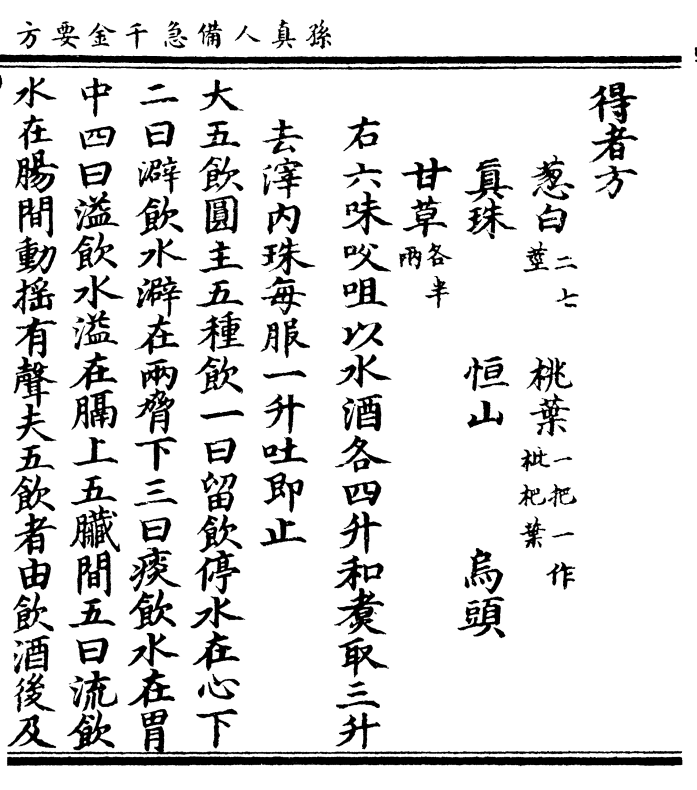 孫真人備急千金要方
得者方
葱白二七莖 桃葉一把一作枇杷葉
真珠 恒山 烏頭
甘草各半兩
右六味㕮咀以水酒各四升和煑取三升
去滓内珠每服一升吐即止
大五飲圓主五種飲一曰留飲停水在心下
二曰澼飲水澼在兩脅下三曰痰飲水在胃
中四曰溢飲水溢在膈上五臟間五曰流飲
水在腸間動揺有聲夫五飲者由飲酒後及